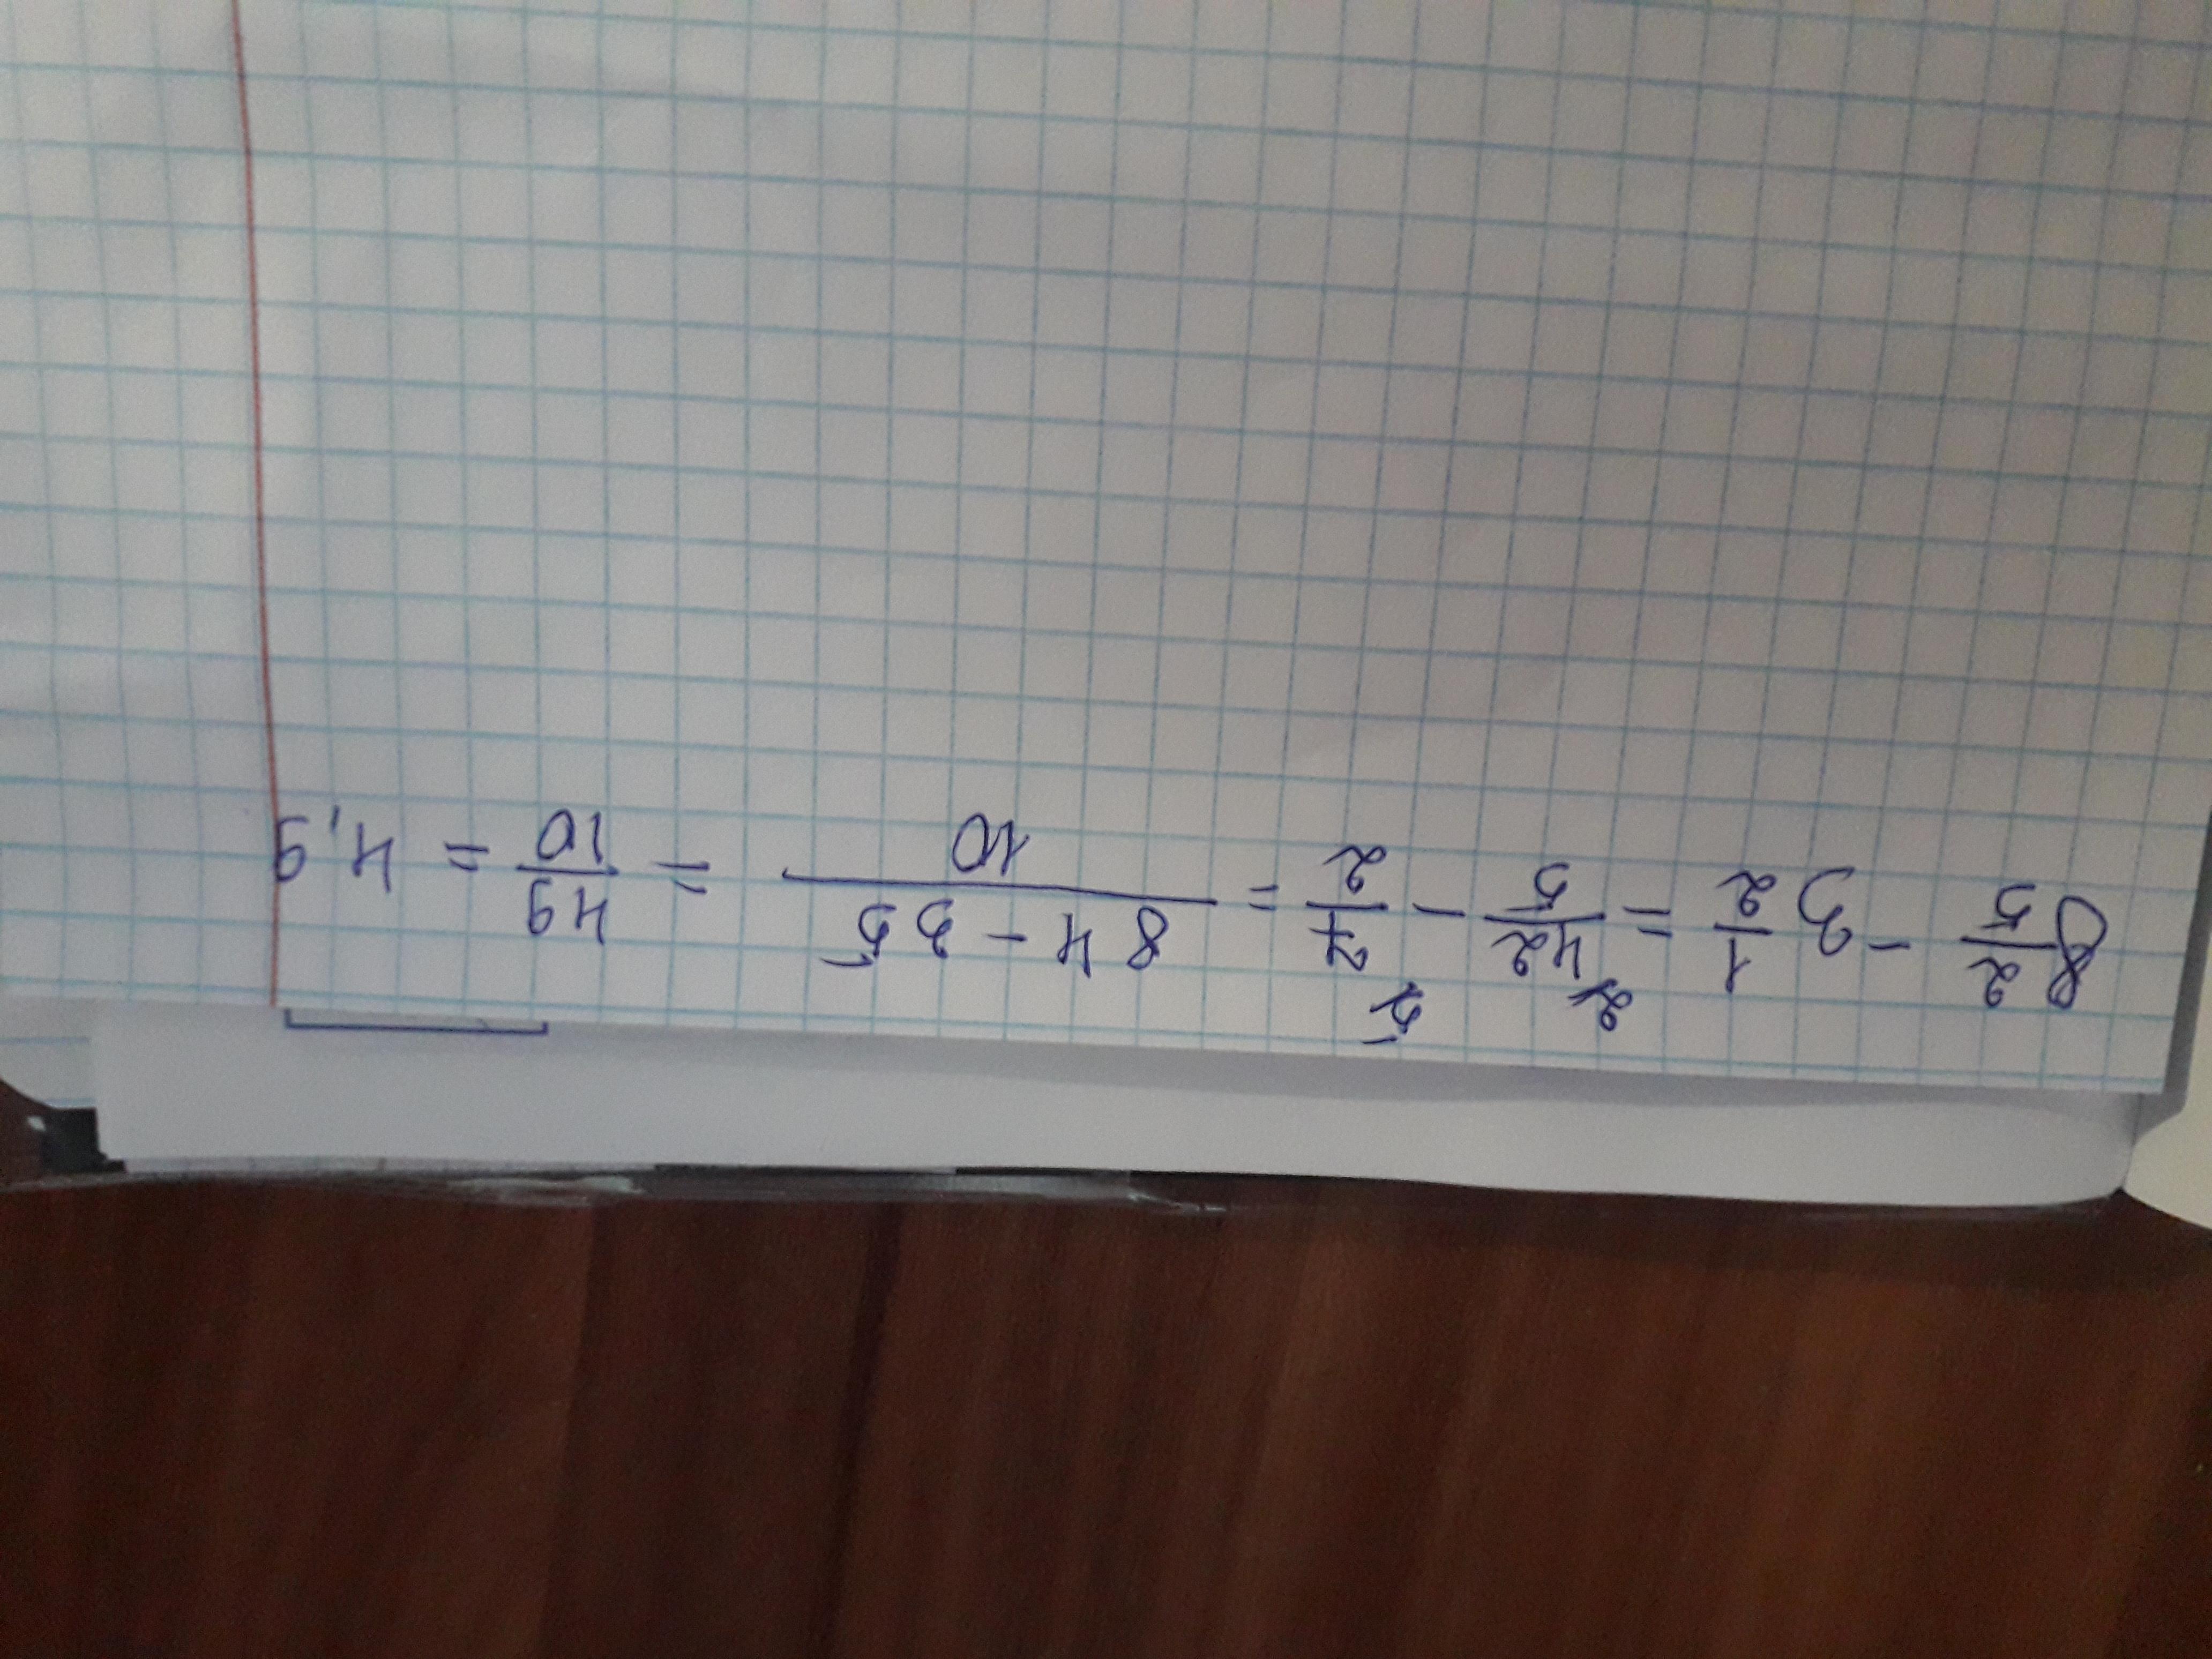 8 2/5 - 3 1/2 = 42/5 ² - 7/2 ⁵ = 84-35/10 = 49/10 = 4,9